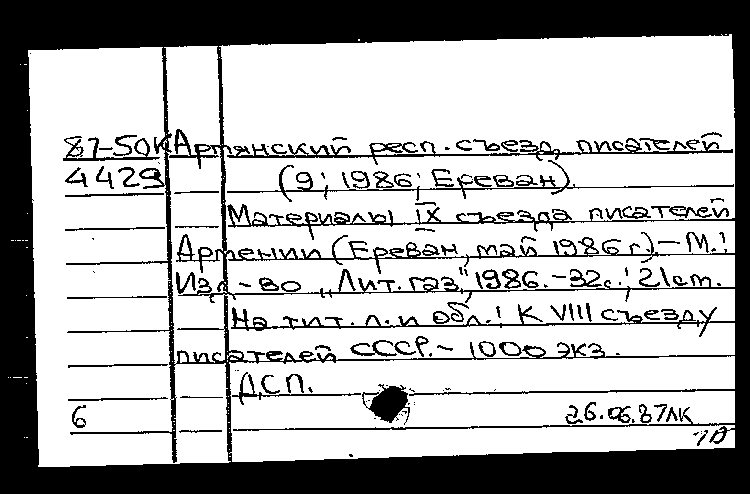 87-50К Артянский респ. съезд писателей
4429 (9; 1986; Ереван).
Материалы IX съезда писателей
Армении (Ереван, май 1986 г.). - М.:
Изд-во „Лит. газ.", 1986. - 32с.; 21см.
На тит. л. и обл.: К VIII съезду
писателей СССР. - 1000 экз.
ДСП.
6 26.06.87ЛК